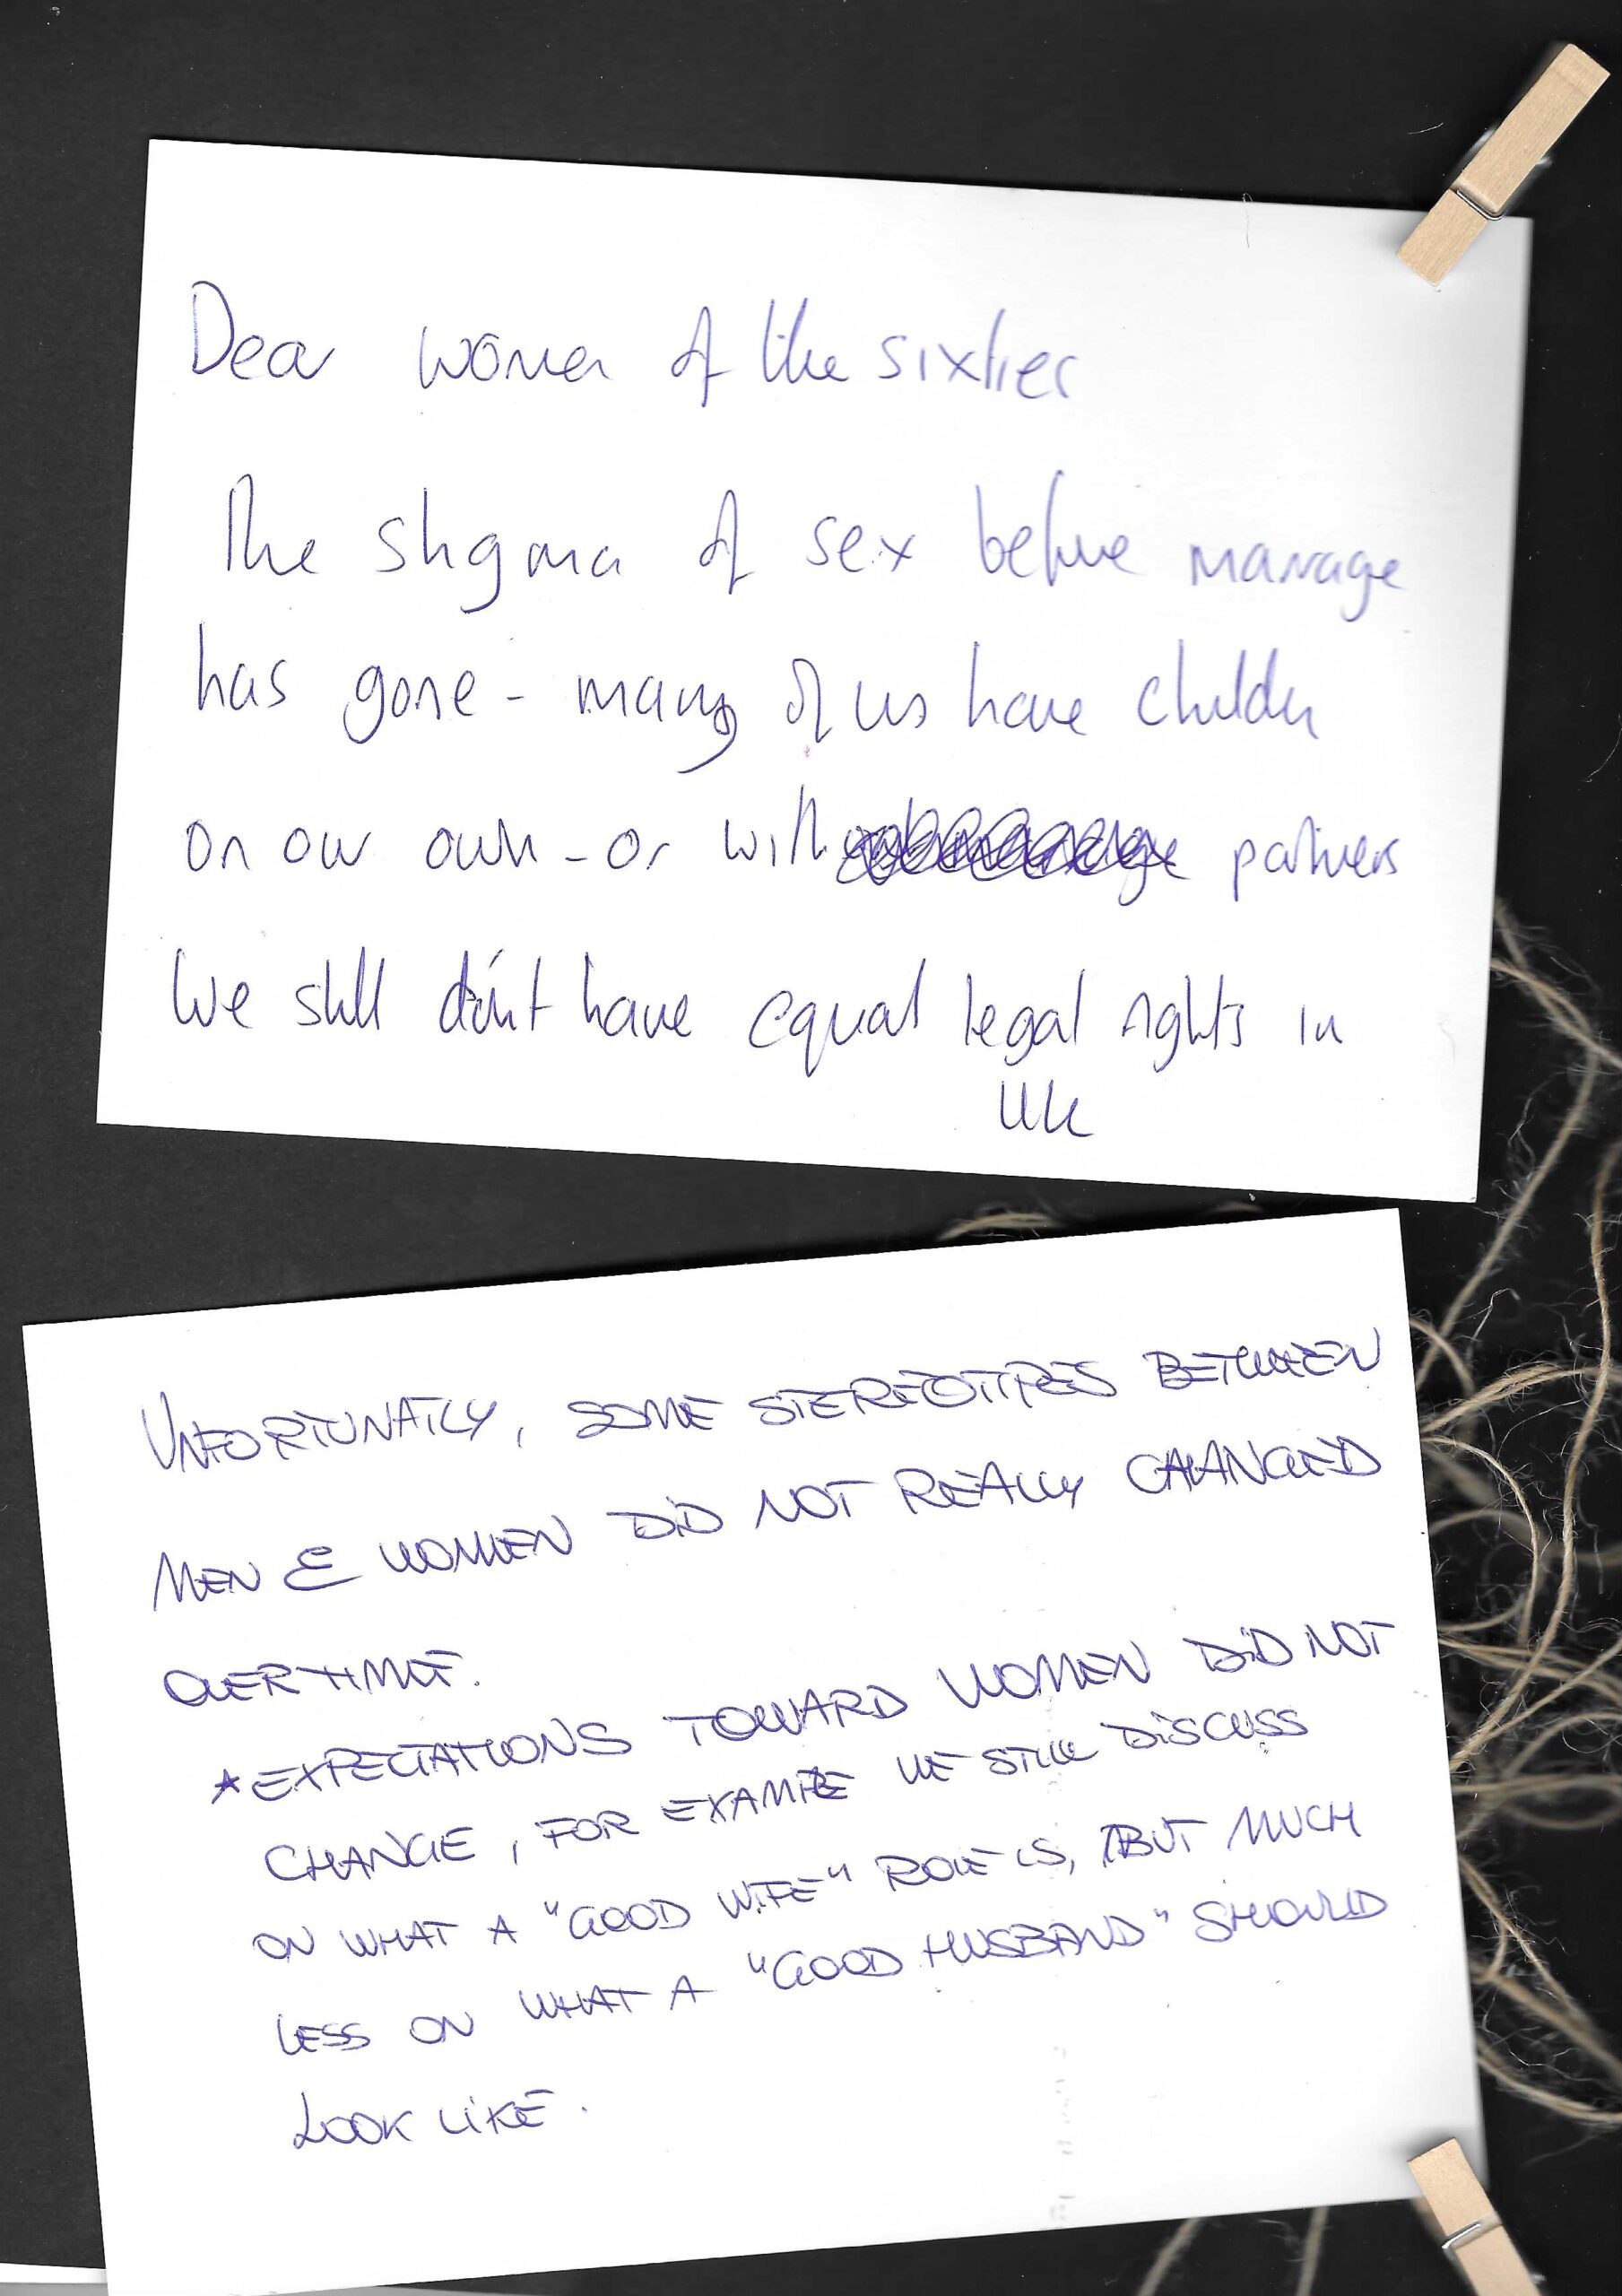 Dear women of the sixties
The stigma of sex before marriage
has gone - many of us have children
on our own - or with partners
We still don't have equal legal rights in
UK
UNFORTUNATLY, SOME STEREOTIPES BETWEEN
MEN & WOMEN DID NOT REALLY CHANGED
OVER TIME.
*EXPECTATIONS TOWARD WOMEN DID NOT
CHANGE, FOR EXAMPLE WE STILL DISCUSS
ON WHAT A "GOOD WIFE" ROLE IS, BUT MUCH
LESS ON WHAT A "GOOD HUSBAND" SHOULD
LOOK LIKE.